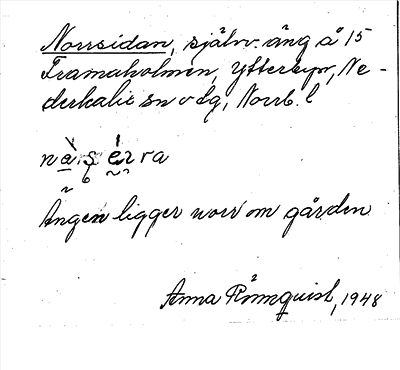 Norrsidan, självv. äng å 15
Framaholmen, Ytterbyn, Ne-
derkalix sn o dg, Norrb. l
Ängen ligger norr om gården
Anna Rönnquist, 1948